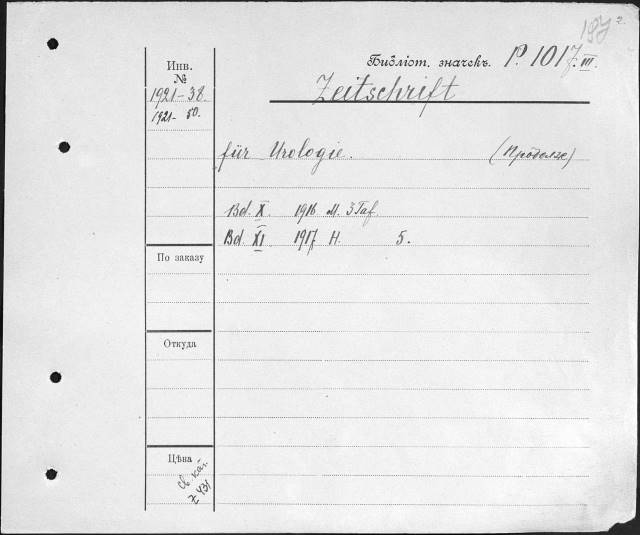 197 2.
Инв.
№
Библіот. значекъ. P. 1017.III.
1921-38.
1921-50.
Zeitschrift
für Urologie. (Продолж)
Bd. X. 1916 M. 3 Taf.
Bd. XI 1917 H. 5.
По заказу
Откуда
Цѣна
Св. кат.
Z 431